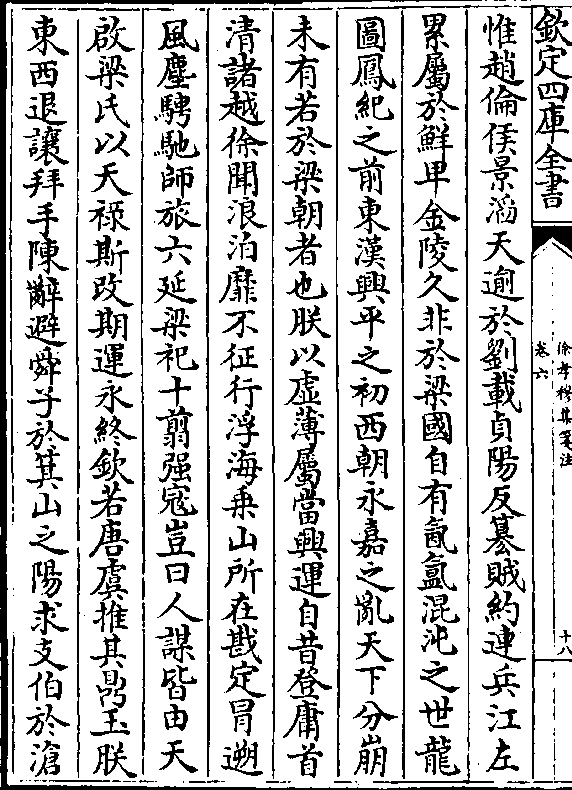 欽定四庫全書
徐孝穆集箋注
卷六
十八
惟趙倫侯景滔天逾於劉載貞陽反簒賊約連兵江左
累屬於鮮卑金陵久非於梁國自有氤氳混沌之世龍
圖鳳紀之前東漢興平之初西朝永嘉之亂天下分崩
未有若於梁朝者也朕以虛薄屬當興運自昔登庸首
清諸越徐聞浪泊靡不征行浮海乗山所在戡定冐遡
風塵騁馳師旅六延梁祀十翦强寇豈曰人謀皆由天
啟梁氏以天祿斯改期運永終欽若唐虞推其鼎玉朕
東西退讓拜手陳辭避舜子於箕山之陽求支伯於滄